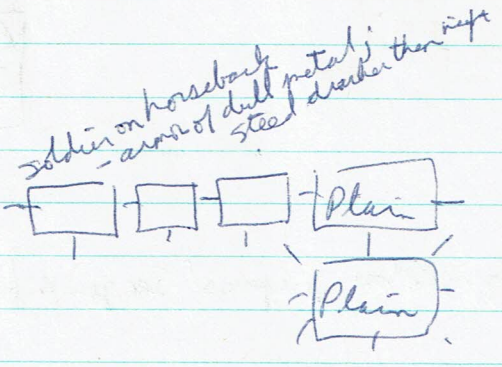 soldier on horseback
- armor of dull metal;
steed darker than night
Plain
Plain